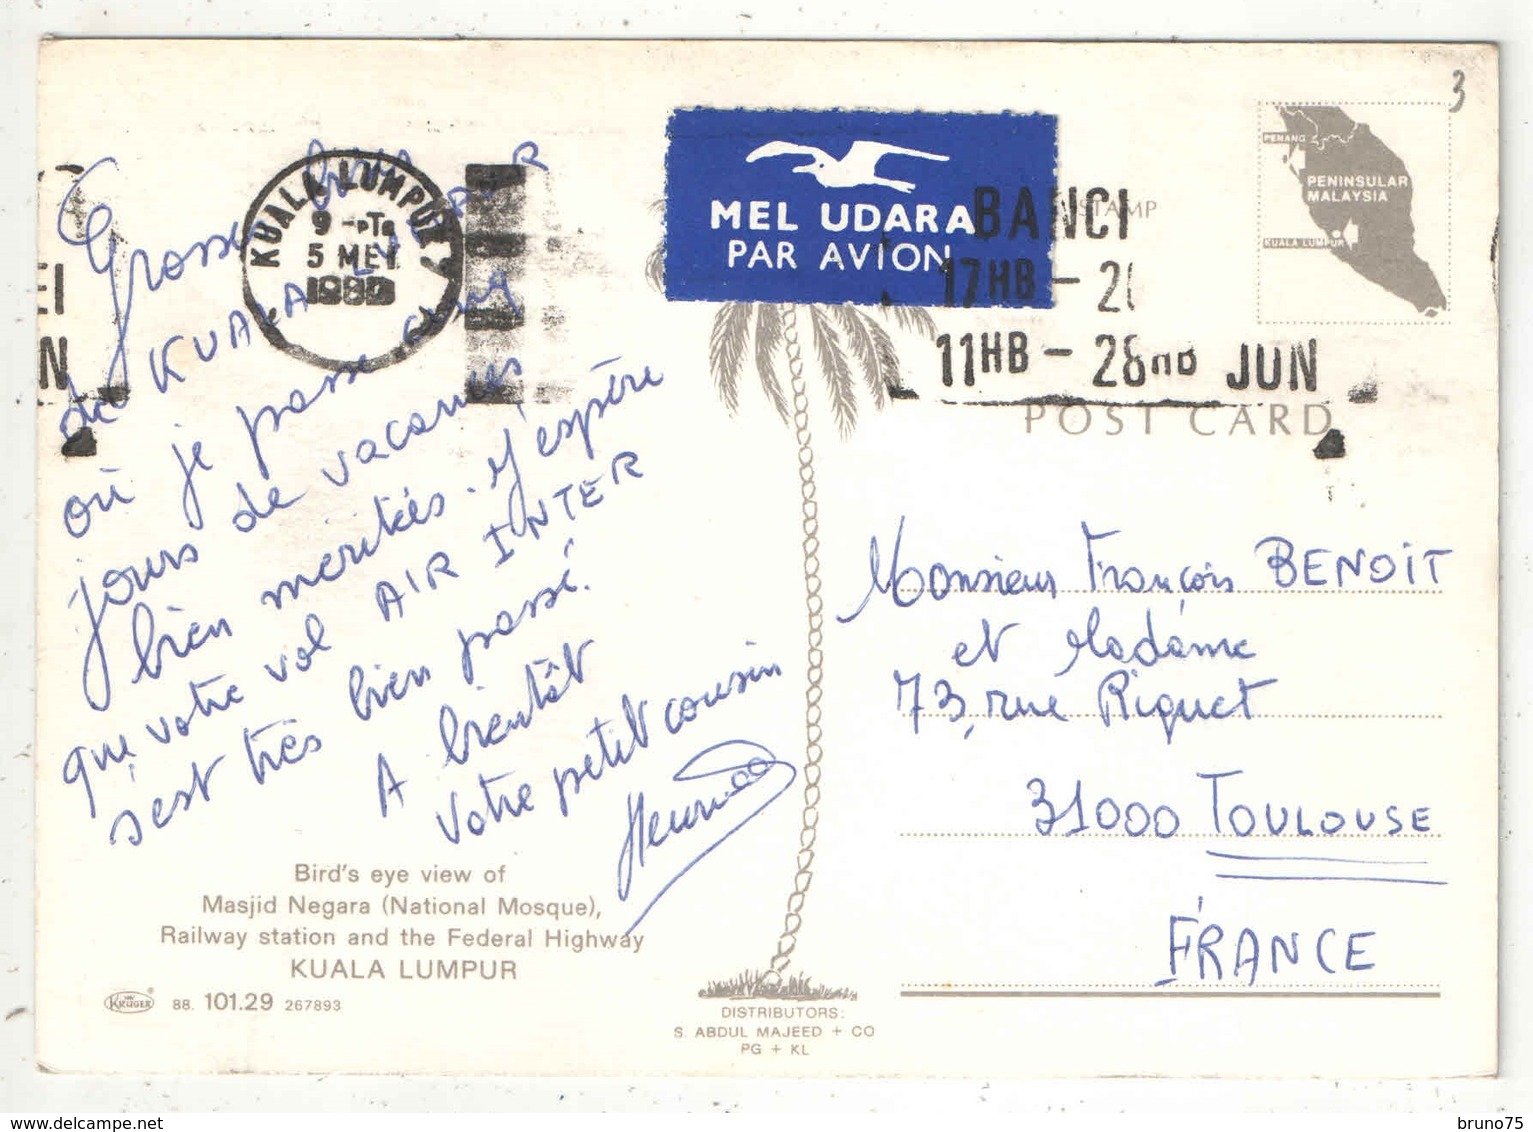 Grosses bises
de KUALA LUMPUR
où je passe cinq
jours de vacances
bien mérités. J'espère
que votre vol AIR INTER
s'est très bien passé.
A bientôt
Votre petit cousin
KUALA LUMPUR
9 -PTG
5 MEI
1980
MEL UDARA
PAR AVION
BANCI
17HB - 2
11HB - 28HB JUN
EI
N
STAMP
3
PENANG
PENINSULAR
MALAYSIA
KUALA LUMPUR
POST CARD
Monsieur François BENOIT
et Madame
73, rue Riquet
31000 TOULOUSE
FRANCE
Bird's eye view of
Masjid Negara (National Mosque),
Railway station and the Federal Highway
KUALA LUMPUR
KRÜGER 88. 101.29 267893
DISTRIBUTORS:
S. ABDUL MAJEED + CO
PG + KL
http://www.delcampe.net
bruno75